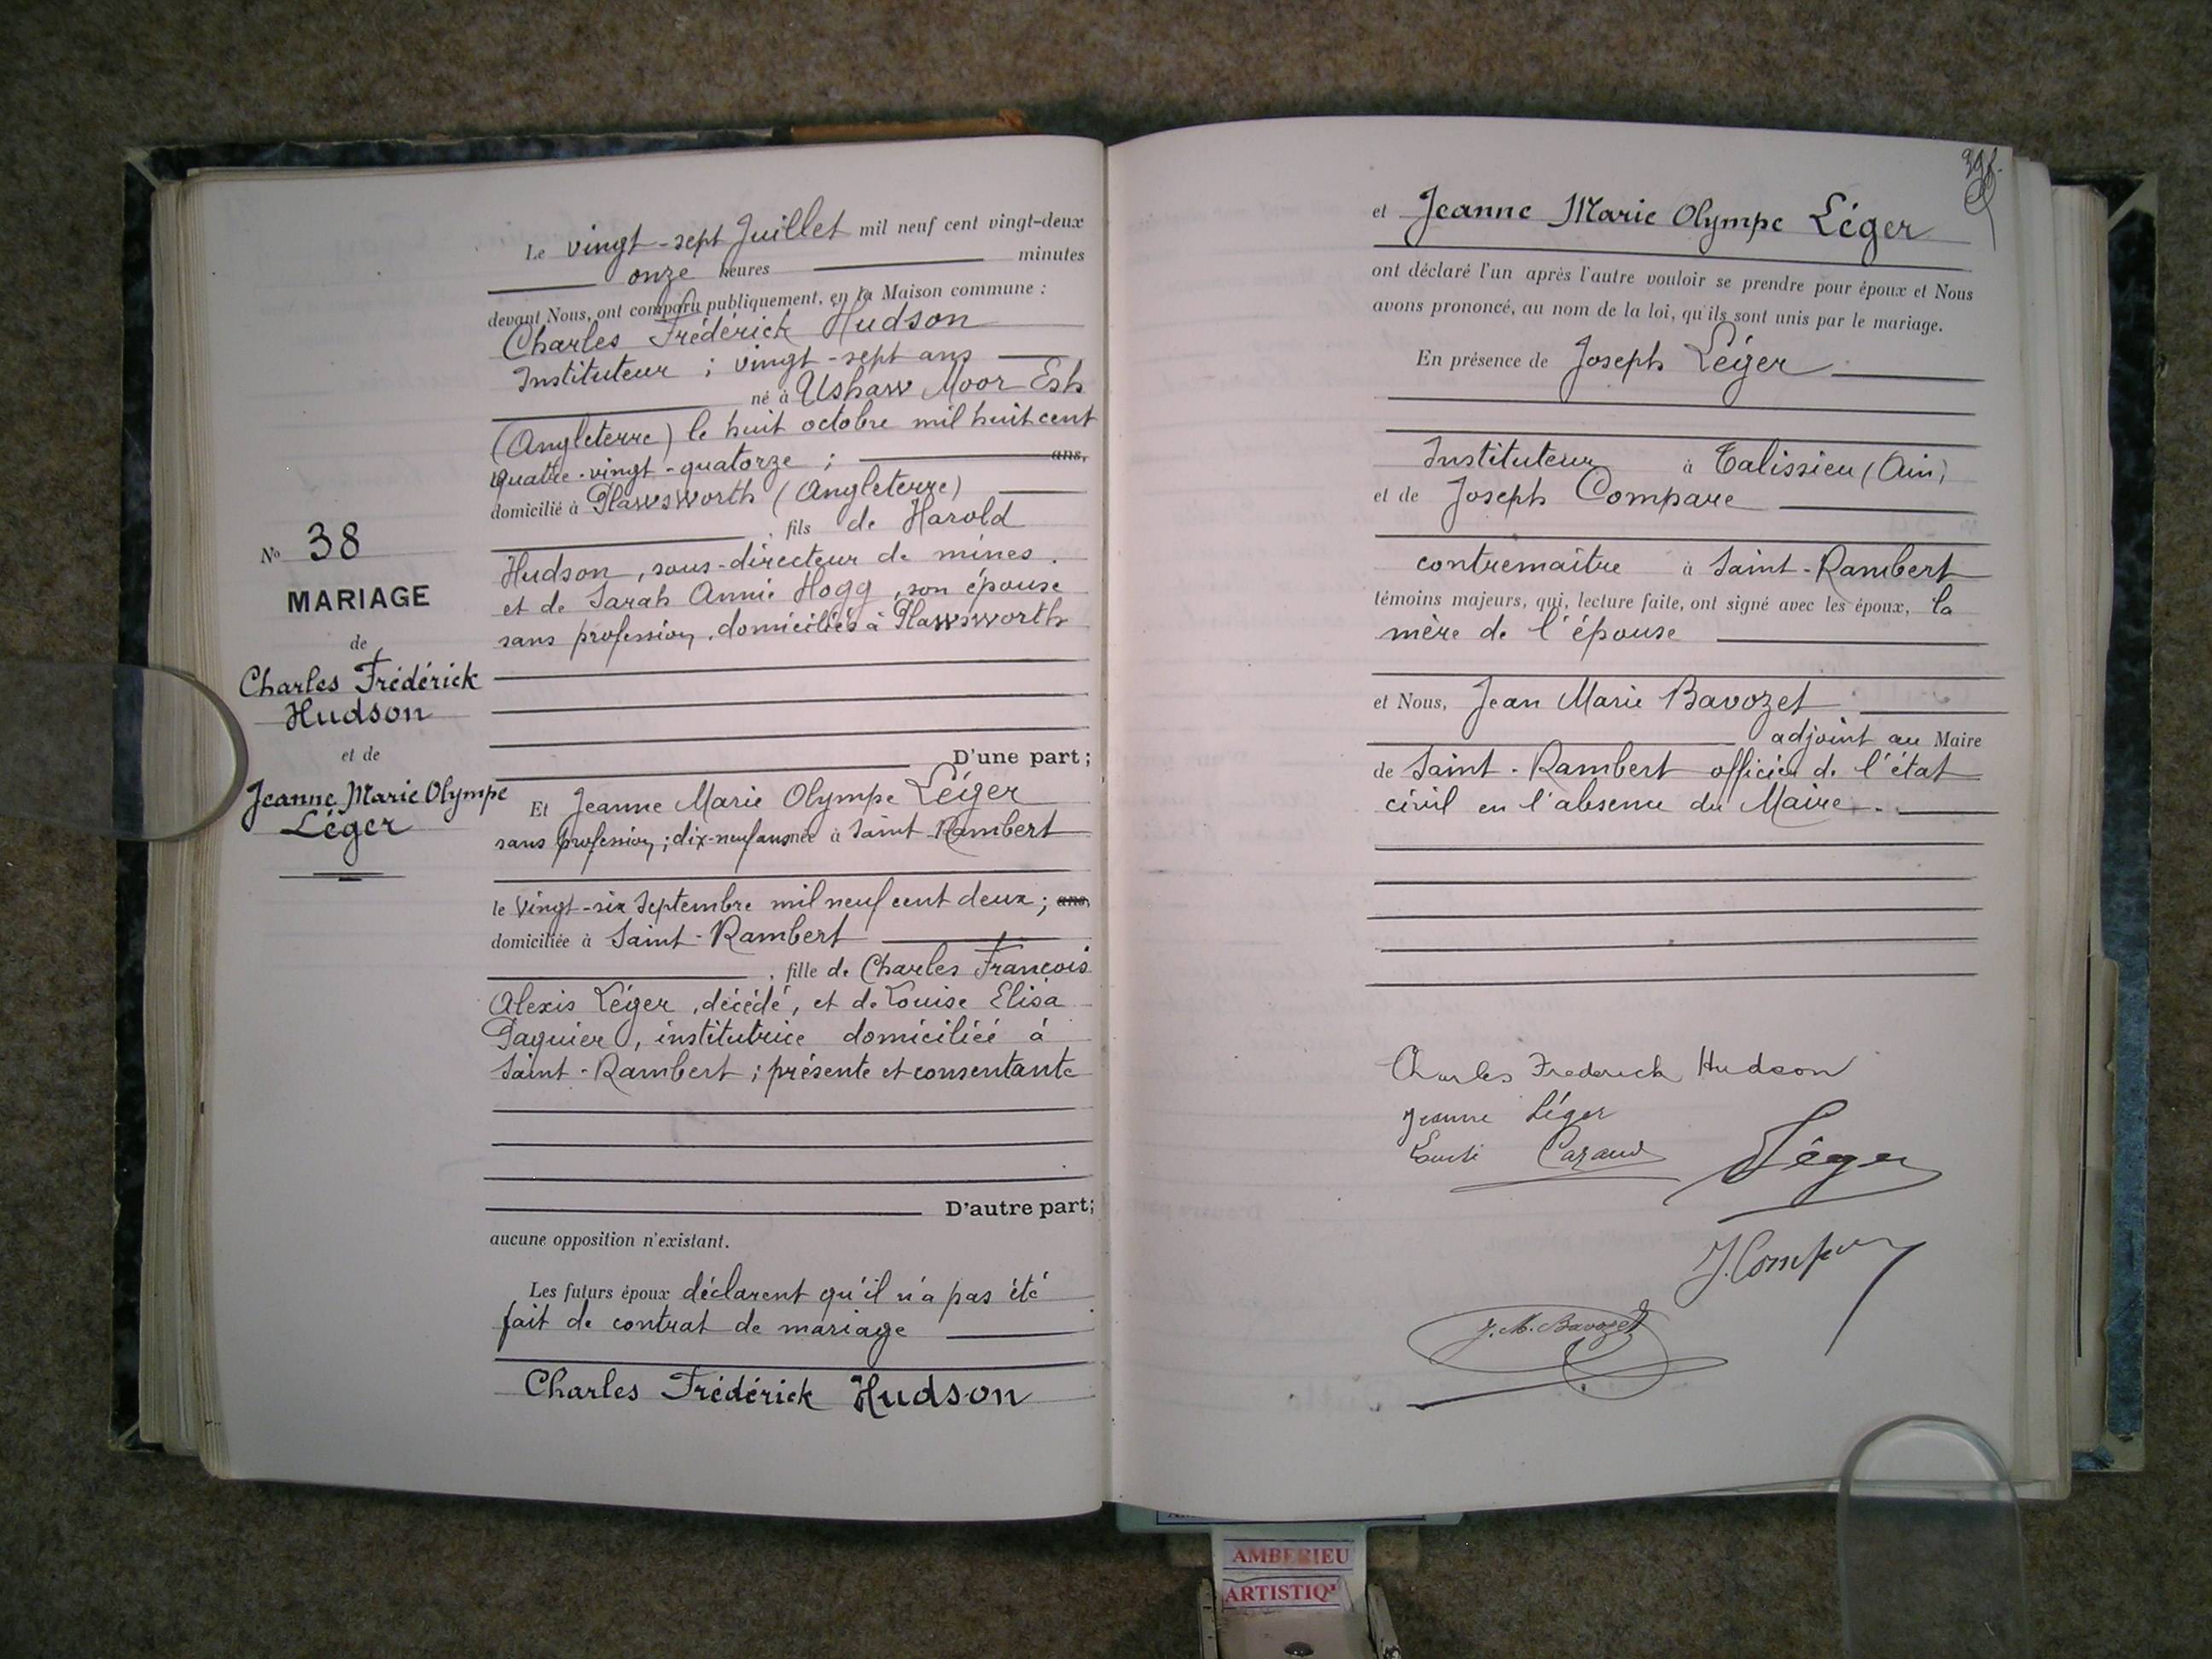 Le vingt-sept Juillet mil neuf cent vingt-deux
onze heures minutes
devant Nous, ont comparu publiquement, en la Maison commune :
Charles Frédérick Hudson
Instituteur ; vingt-sept ans
né à Ushaw Moor Esh
(Angleterre) le huit octobre mil huit cent
quatre-vingt-quatorze ; ans,
domicilié à Plawsworth (Angleterre)
, fils de Harold
Hudson, sous-directeur de mines.
et de Sarah Annie Hogg, son épouse
sans profession, domiciliés à Plawsworth
D'une part;
No 38
MARIAGE
de
Charles Frédérick
Hudson
et de
Jeanne Marie Olympe
Léger
Et Jeanne Marie Olympe Léger
sans profession; dix-neuf ans née à Saint-Rambert
le vingt-six Septembre mil neuf cent deux ; ans,
domiciliée à Saint-Rambert
, fille de Charles François
Alexis Léger, décédé, et de Louise Elisa
institutrice domiciliée à
Saint-Rambert ; présente et consentante
D'autre part;
aucune opposition n'existant.
Les futurs époux déclarent qu'il n'a pas été
fait de contrat de mariage
Charles Frédérick Hudson
et Jeanne Marie Olympe Léger
ont déclaré l'un après l'autre vouloir se prendre pour époux et Nous
avons prononcé, au nom de la loi, qu'ils sont unis par le mariage.
En présence de Joseph Léger
Instituteur à Talissieu (Ain)
et de Joseph Compare
contremaître à Saint-Rambert
témoins majeurs, qui, lecture faite, ont signé avec les époux, la
mère de l'épouse
et Nous, Jean Marie Bavozet
adjoint au Maire
de Saint-Rambert officier de l'état
civil en l'absence du Maire.
Charles Frederick Hudson
Jeanne Léger
Léger
J. Compare
J. M. Bavozet
AMBERIEU
ARTISTIQ